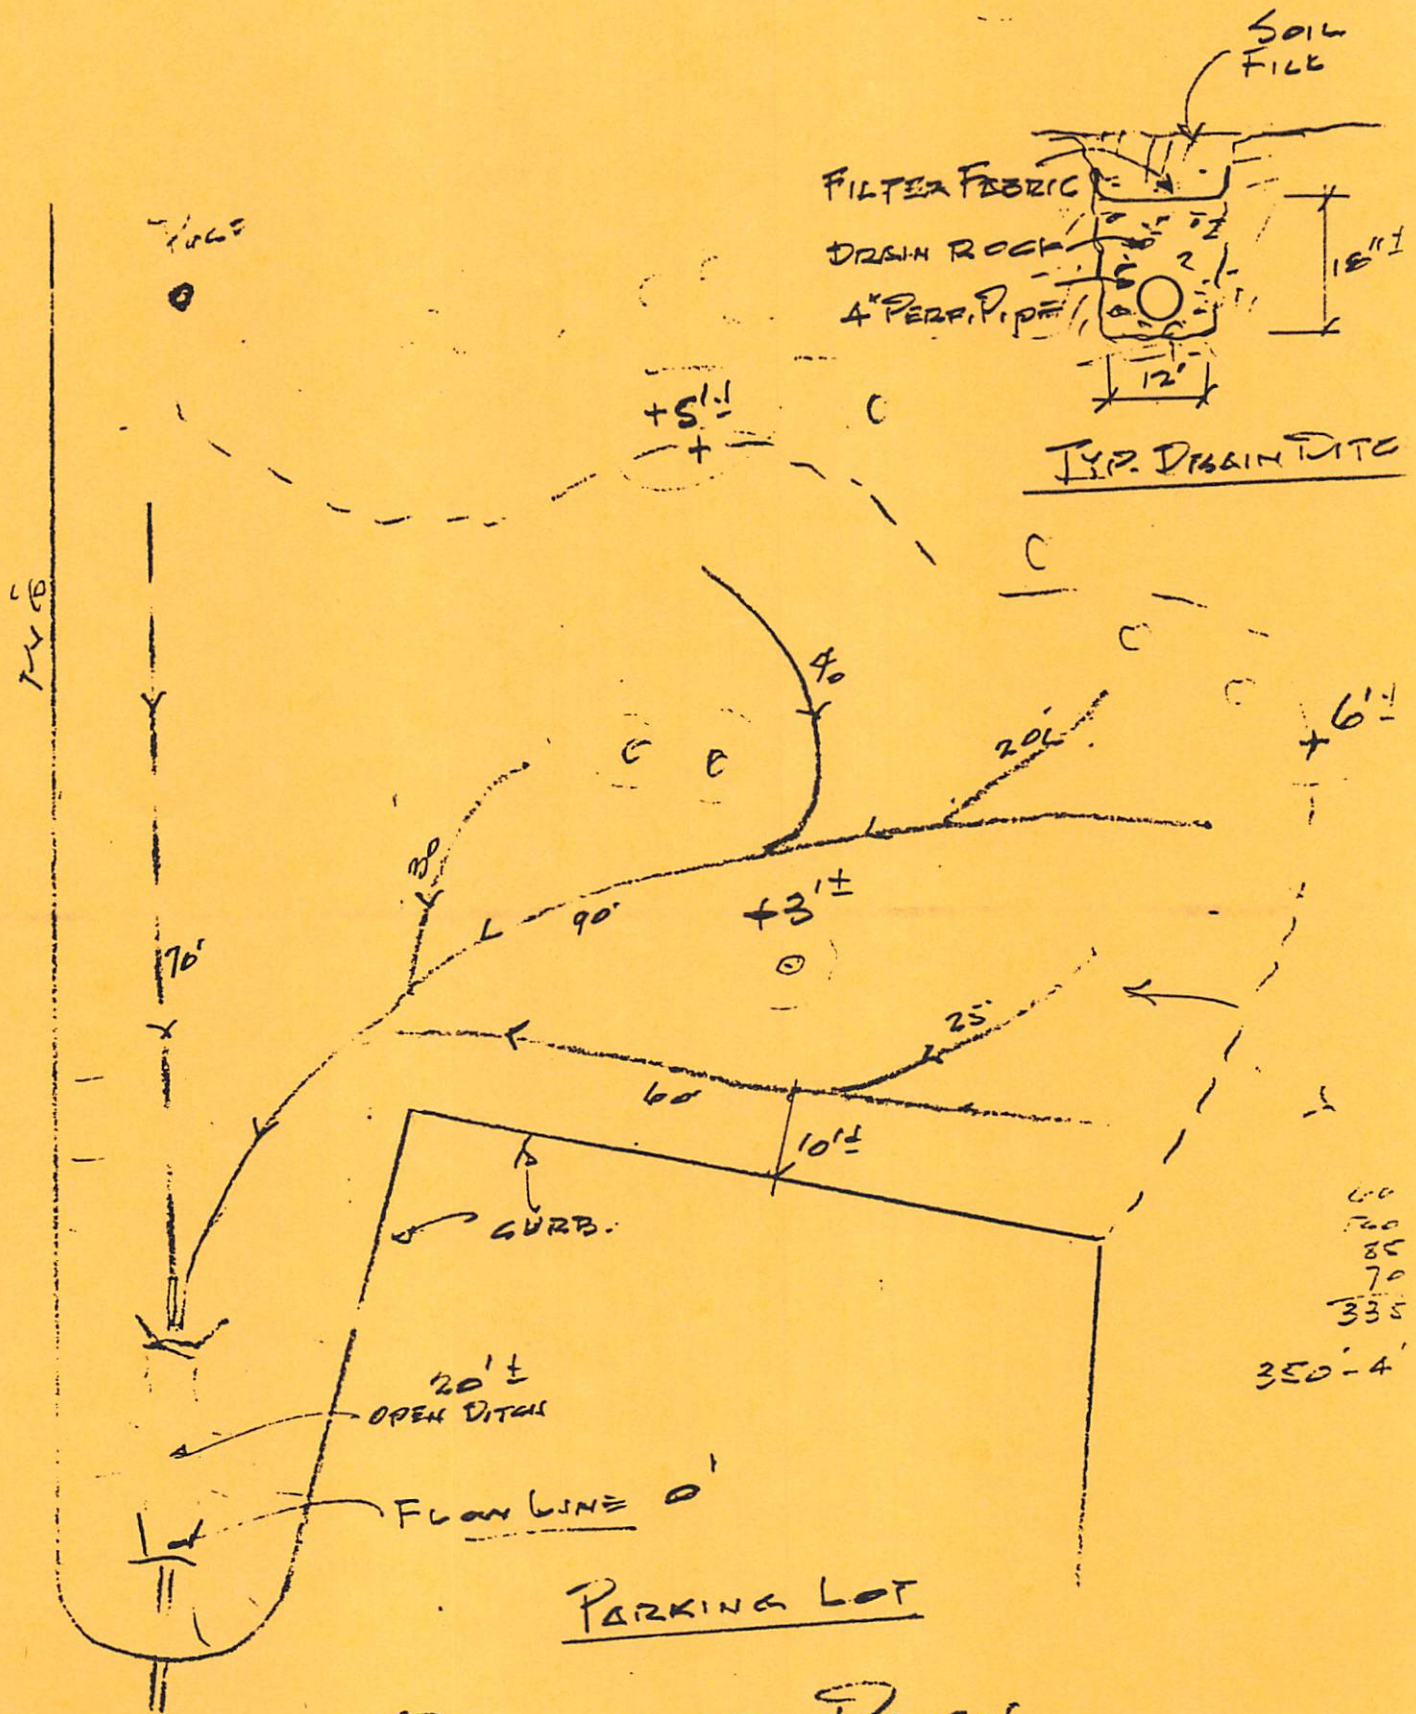 SOIL
FILL
FILTER FABRIC
DRAIN ROCK
4" PERF. PIPE
18" ±
12"
TYP. DRAIN DITC
+5' ±
C
C
C
C
6' ±
40
20'
C
C
30
90'
+3' ±
70'
25'
60'
10' ±
CURB.
85
70
335
350'-4'
20' ±
OPEN DITCH
FLOW LINE 0'
PARKING LOT